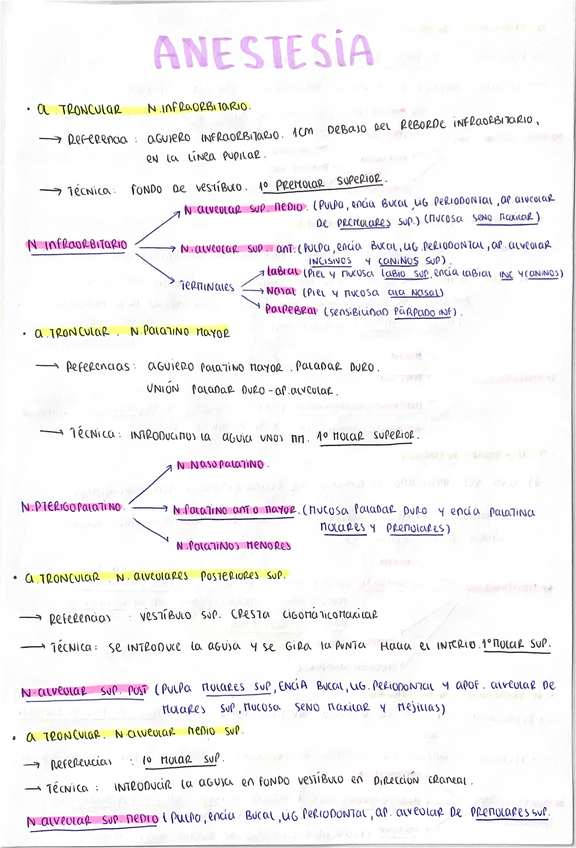 ANESTESIA
• a. TRONCULAR N. INFRAORBITARIO.
→ Referencia : AGUJERO INFRAORBITARIO. 1CM DEBAJO DEL REBORDE INFRAORBITARIO,
EN LA LÍNEA PUPILAR.
→ Técnica: FONDO DE VESTÍBULO. 1º PREMOLAR SUPERIOR.
N alveolar sup medio. (Pulpa, encía Bucal, lig. Periodontal, ap. alveolar
DE PREMOLARES SUP.) (Mucosa SENO MAXILAR)
N INFRAORBITARIO
N. alveolar sup ant. (Pulpa, encía Bucal, lig. Periodontal, ap. alveolar
INCISIVOS Y CANINOS SUP).
TERMINALES
labial (Piel y mucosa labio sup, encía labial INC y CANINOS)
Nasal (Piel y mucosa ala Nasal)
Palpebral (sensibilidad PÁRPADO INF).
• a. TRONCULAR. N. PALATINO MAYOR
→ Referencias: AGUJERO PALATINO MAYOR. PALADAR DURO.
UNIÓN PALADAR DURO-AP.alveolar.
→ Técnica: INTRODUCIMOS LA AGUJA UNOS MM. 1º MOLAR SUPERIOR.
N NASOPALATINO.
N. PTERIGOPALATINO
N. PALATINO ANT O MAYOR. (MUCOSA PALADAR DURO Y encía PALATINA
MOLARES Y PREMOLARES)
N PALATINOS MENORES
• a. TRONCULAR. N. alveolares POSTERIORES SUP.
→ Referencias : VESTÍBULO SUP. CRESTA CIGOMÁTICOMAXILAR
→ Técnica: SE INTRODUCE LA AGUJA Y SE GIRA LA PUNTA HACIA EL INTERIO. 1º MOLAR SUP.
N. alveolar SUP. POST (PULPA MOLARES SUP, ENCÍA BUCAL, LIG. PERIODONTAL Y APOF. alveolar DE
MOLARES SUP, MUCOSA SENO MAXILAR Y MEJILLAS)
• a TRONCULAR. N alveolar MEDIO SUP.
→ Referencias : 1º MOLAR SUP.
→ Técnica: INTRODUCIR LA AGUJA EN FONDO VESTÍBULO EN DIRECCIÓN CRANEAL.
N alveolar SUP MEDIO (PULPA, encía BUCAL, LIG PERIODONTAL, AP. alveolar DE PREMOLARES SUP.